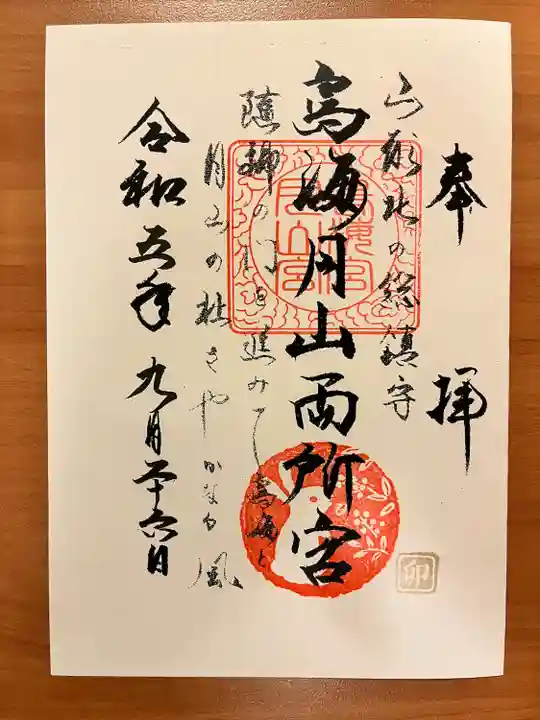 奉拝
山形北の総鎮守
鳥海月山両所宮
随神の門を進みて鳥海と
月山の社さやかなる風
令和五年九月二十六日
卯